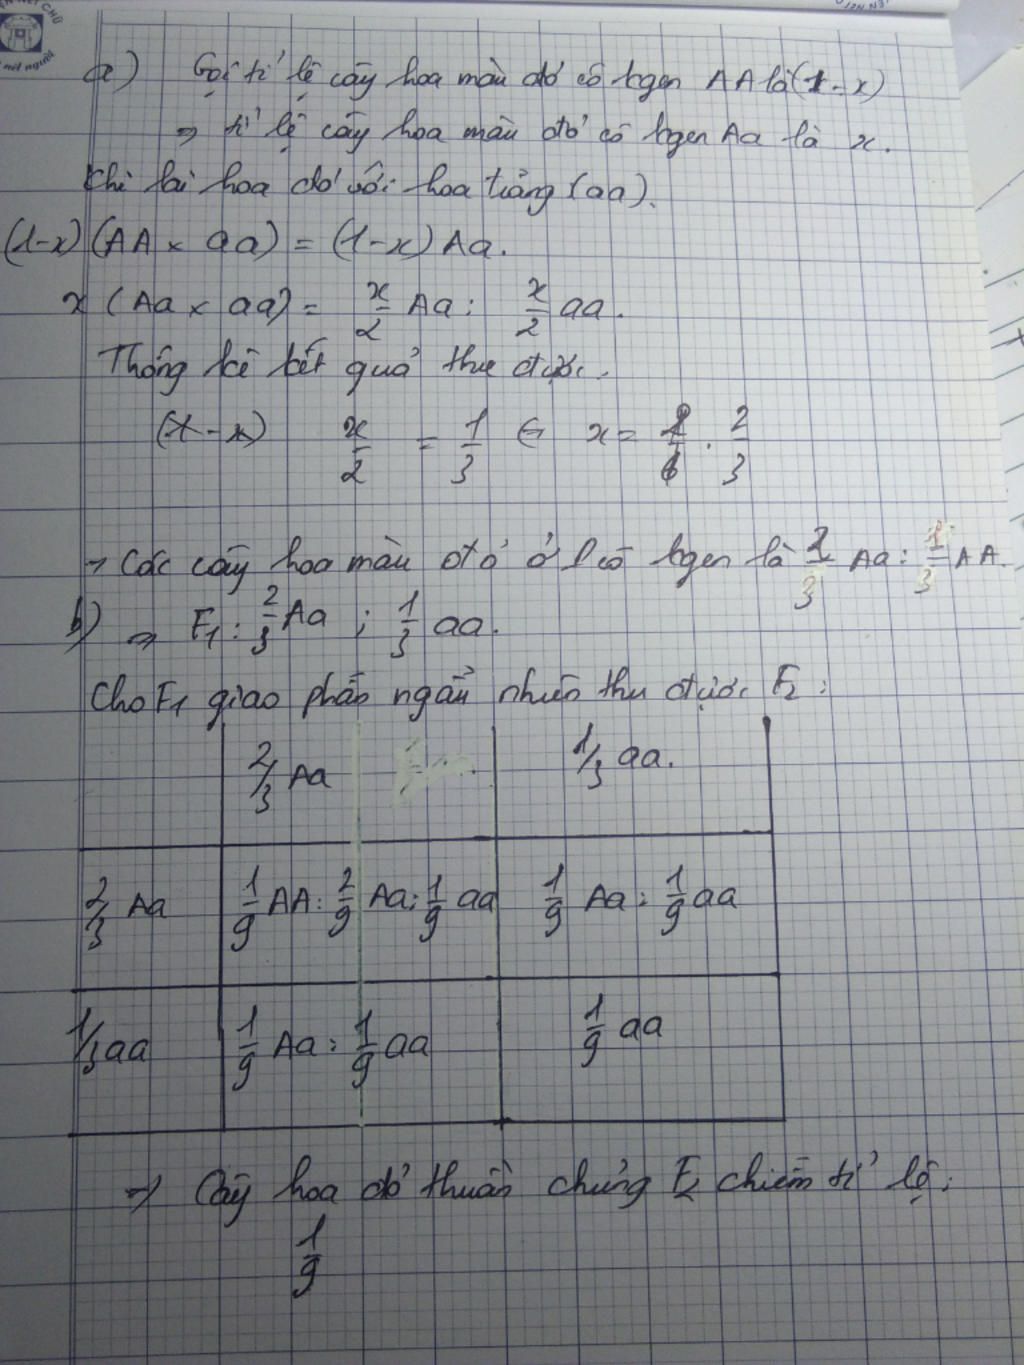 ÊN NÉT CHỮ
nết người
a) Gọi tỉ lệ cây hoa màu đỏ có kgen AA là (1-x)
⇒ tỉ lệ cây hoa màu đỏ có kgen Aa là x.
Khi lai hoa đỏ với hoa trắng (aa).
(1-x) (AA x aa) = (1-x) Aa.
x (Aa x aa) = x/2 Aa : x/2 aa.
Thống kê kết quả thu được.
(1-x) x/2 = 1/3 x = 2/3
→ Các cây hoa màu đỏ ở P có kgen là 2/3 Aa : 1/3 AA.
b) ⇒ F1 : 2/3 Aa ; 1/3 aa.
Cho F1 giao phấn ngẫu nhiên thu được F2 :
2/3 Aa 1/3 aa.
2/3 Aa 1/9 AA : 2/9 Aa : 1/9 aa 1/9 Aa : 1/9 aa
1/3 aa 1/9 Aa : 1/9 aa 1/9 aa
⇒ Cây hoa đỏ thuần chủng F2 chiếm tỉ lệ :
1/9